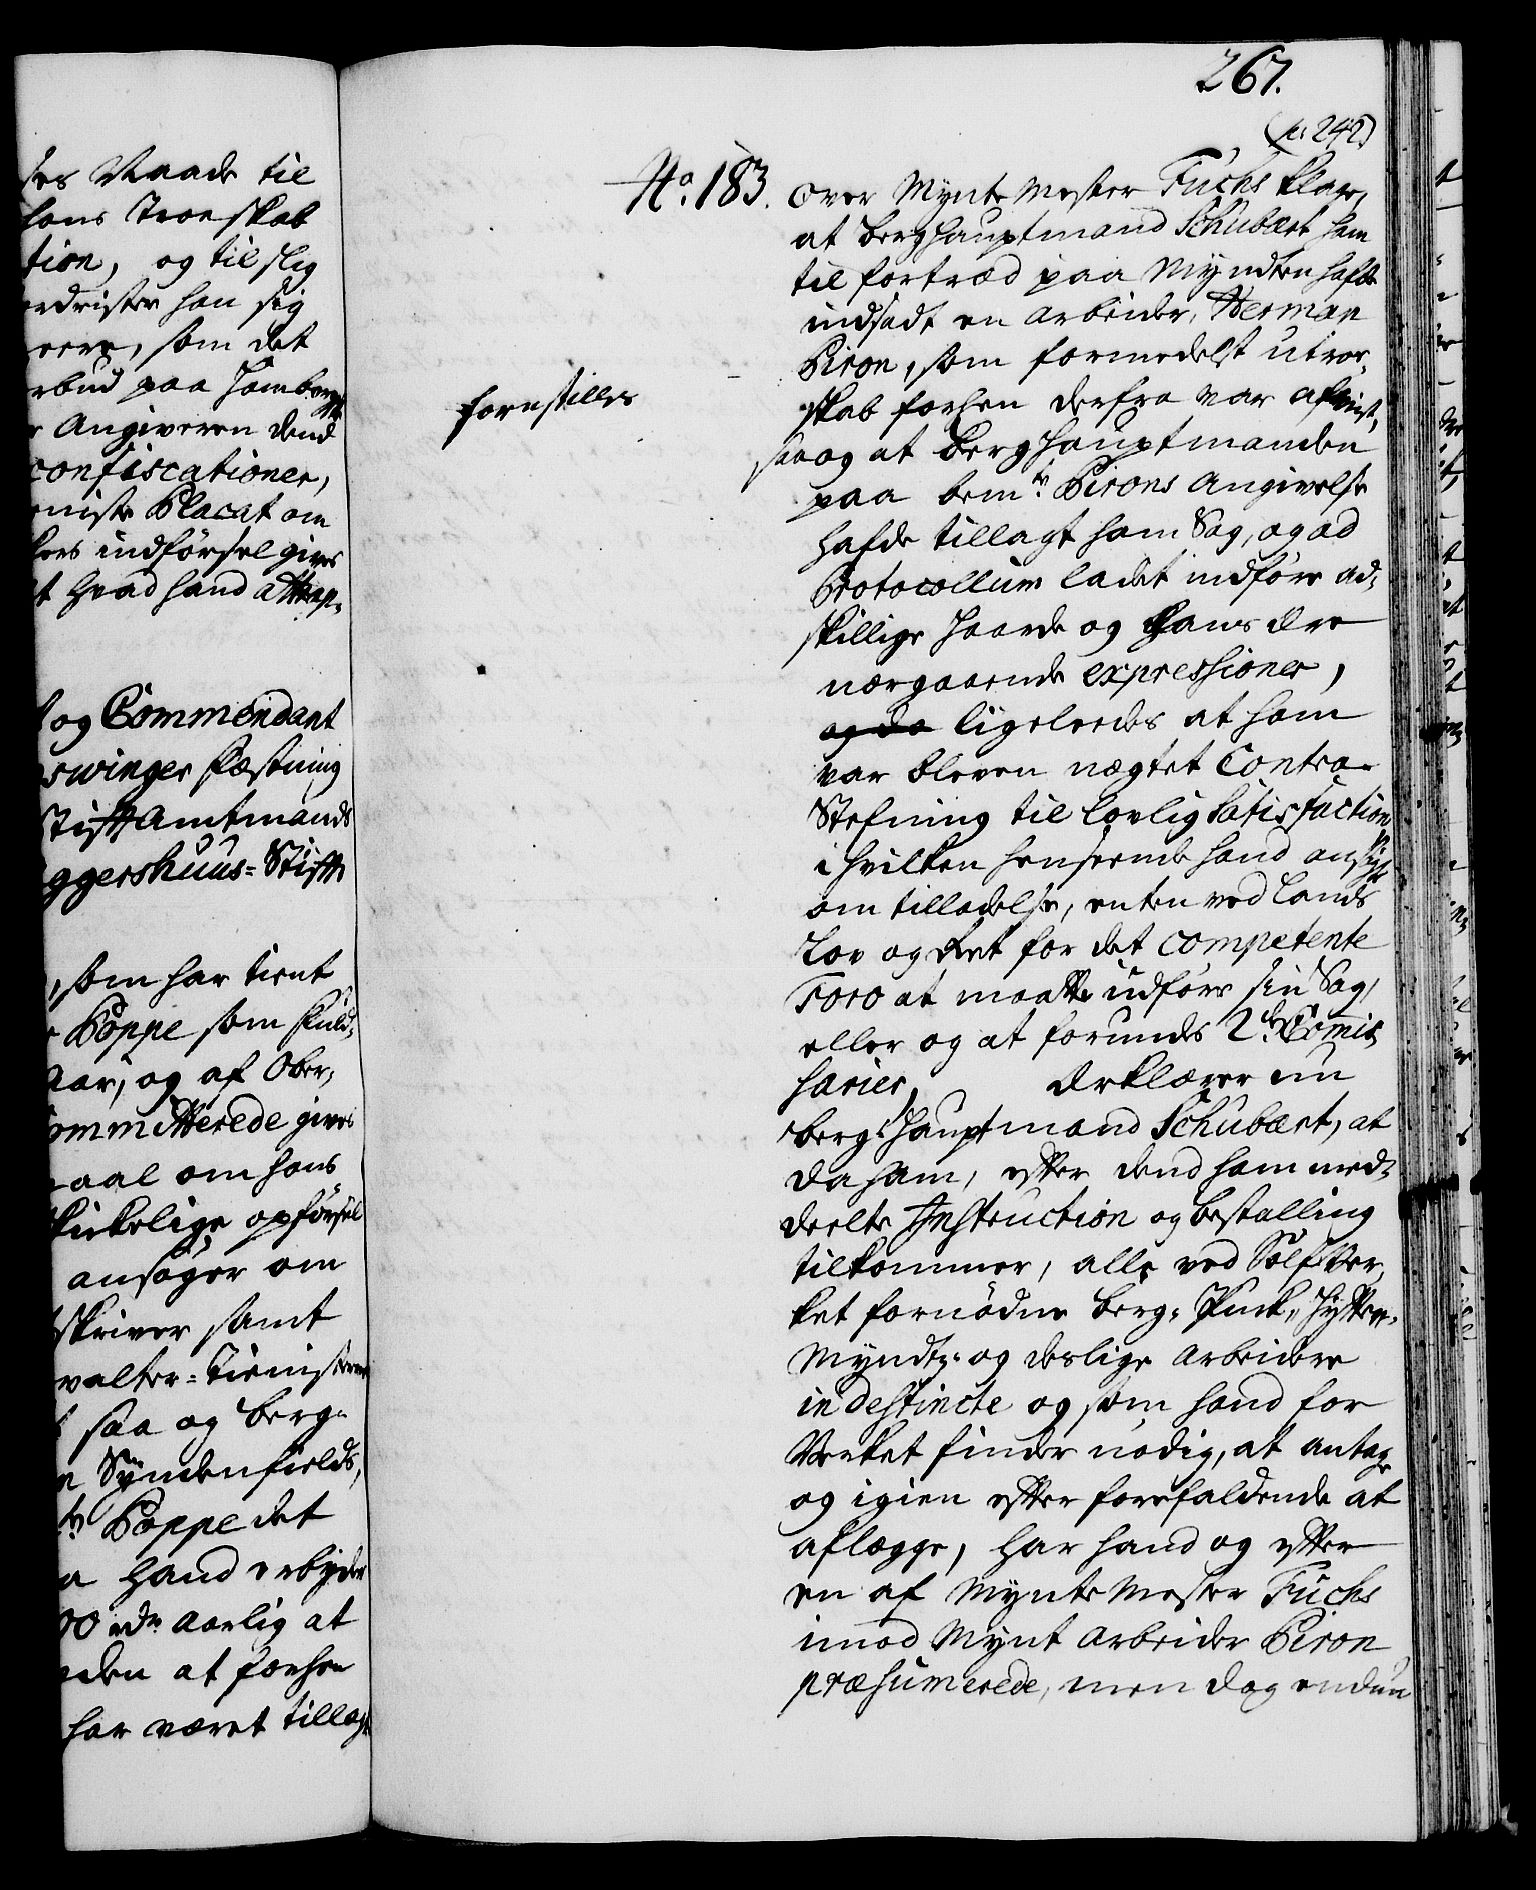 ses Naade til
hans Troeskab
tion, og til slig
erdrister han sig
som det
rbud paa
Angiveren dend
confiscationer,
Placat om
kers indførsel gives
t hvad hand attrap-
og Commendant
swinger Fæstning
Stiftamtmands
ggershuus-Stift
, som har tient
Poppe som Fuld-
aar, og af Ober-
ommitterede gives
om hans
skikkelige opførsel
ansøger om
skriver samt
valter-Tieniste
saa og Berg-
Syndenfields,
Poppe det
a Hand erbyder
00 rdr aarlig at
den at forhen
har været tillagt
267.
(p. 242)
No. 183.
forestilles
Over Mynte Mester Fuchs klage,
at Berghauptmand Schubært ham
til fortræd paa Myndten hafde
indsadt en arbeider, Herman
Piron, som formedelst utroe-
skab forhen derfra var afviist,
saa og at Berghauptmanden
paa bemte Pirons Angivelse
hafde tillagt ham Sag, og ad
Protocollum ladet indføre ad-
skillige haarde og hans ære
nærgaaende expressioner,
og da ligeleedes at ham
var bleven nægtet Contra-
Stefning til lovlig Satisfaction,
i hvilken henseende hand ansøgte
om tilladelse, enten ved Lands
Lov og Ret for det competente
Foro at maatte udføre sin Sag,
eller og at forundes 2de Commis-
sarier, Erklærer nu
Berg-Hauptmand Schubært, at
da ham, efter dend ham med-
deelte Instruction og bestalling
tilkommer, alle ved Sølfver-
ket fornødne Berg- Puck- Hytte-
Myndtz- og deslige Arbeidere
indestincte og som hand for
Verket finder nødig, at antage
og igien efter forefaldende at
aflægge, har hand og efter
en af Mynte Mester Fuchs
imod Mynt Arbeider Piron
præsumerede, men dog endnu